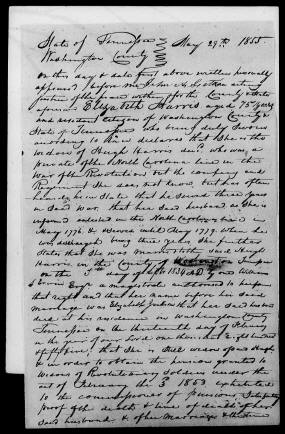 State of Tennessee May 29th 1855.
Washington County
On this day & date first above written personally
appeared before me John
justice of the peace for the County &
aforesaid Elizabeth Harris aged 75 years
and resident citizen of Washington County &
State of Tennessee who being duly sworn
according to law declares that She is the
widow of Hugh Harris decd. who was a
private of the North Carolina line in the
War of the Revolution but the company and
Regiment She does not know, but has often
heard him State that he served three years
in Said War. that her Said husband as She is
informed enlisted in the North Carolina line in
May 1776 & served until May 1779. when he
was discharged being three years She further
States that She was married to the said Hugh
Harris in the County of Washington
on the day of 1834 AD by one William
Esqr a magistrate authorised to perform
that right and that her name before her said
marriage was Elizabeth that her Said husband
died at his residence in Washington County
Tennessee on the thirteenth day of
in the year of our Lord one thousand Eight hundred
& that She is still widow of said Hugh
& in order to obtain the pension granted to
Widows of Revolutionary Soldiers under the
act of February the 3d 1853 exhibited
to the commissioner of pensions
proof of the death & time of death of her
said husband & of her marriage & the time